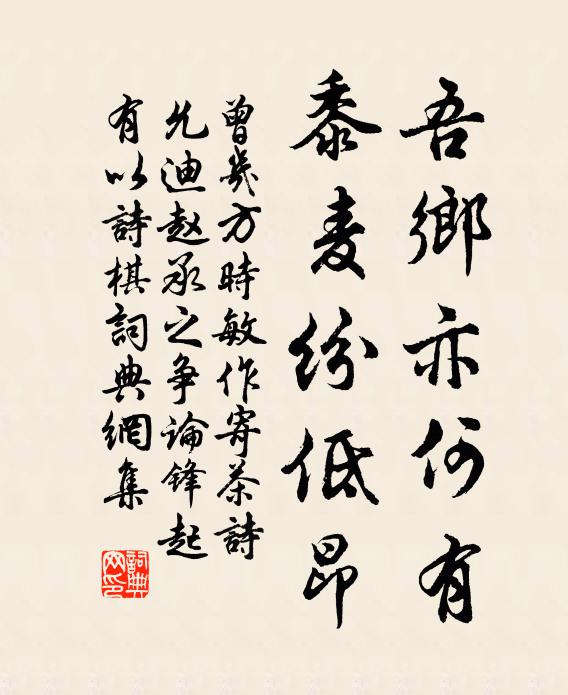 吾鄉亦何有
黍麦紛低昂
曾幾方時敏作寄茶詩
允迪赵承之争論鋒起
有以詩棋詞典網集
詞典网印